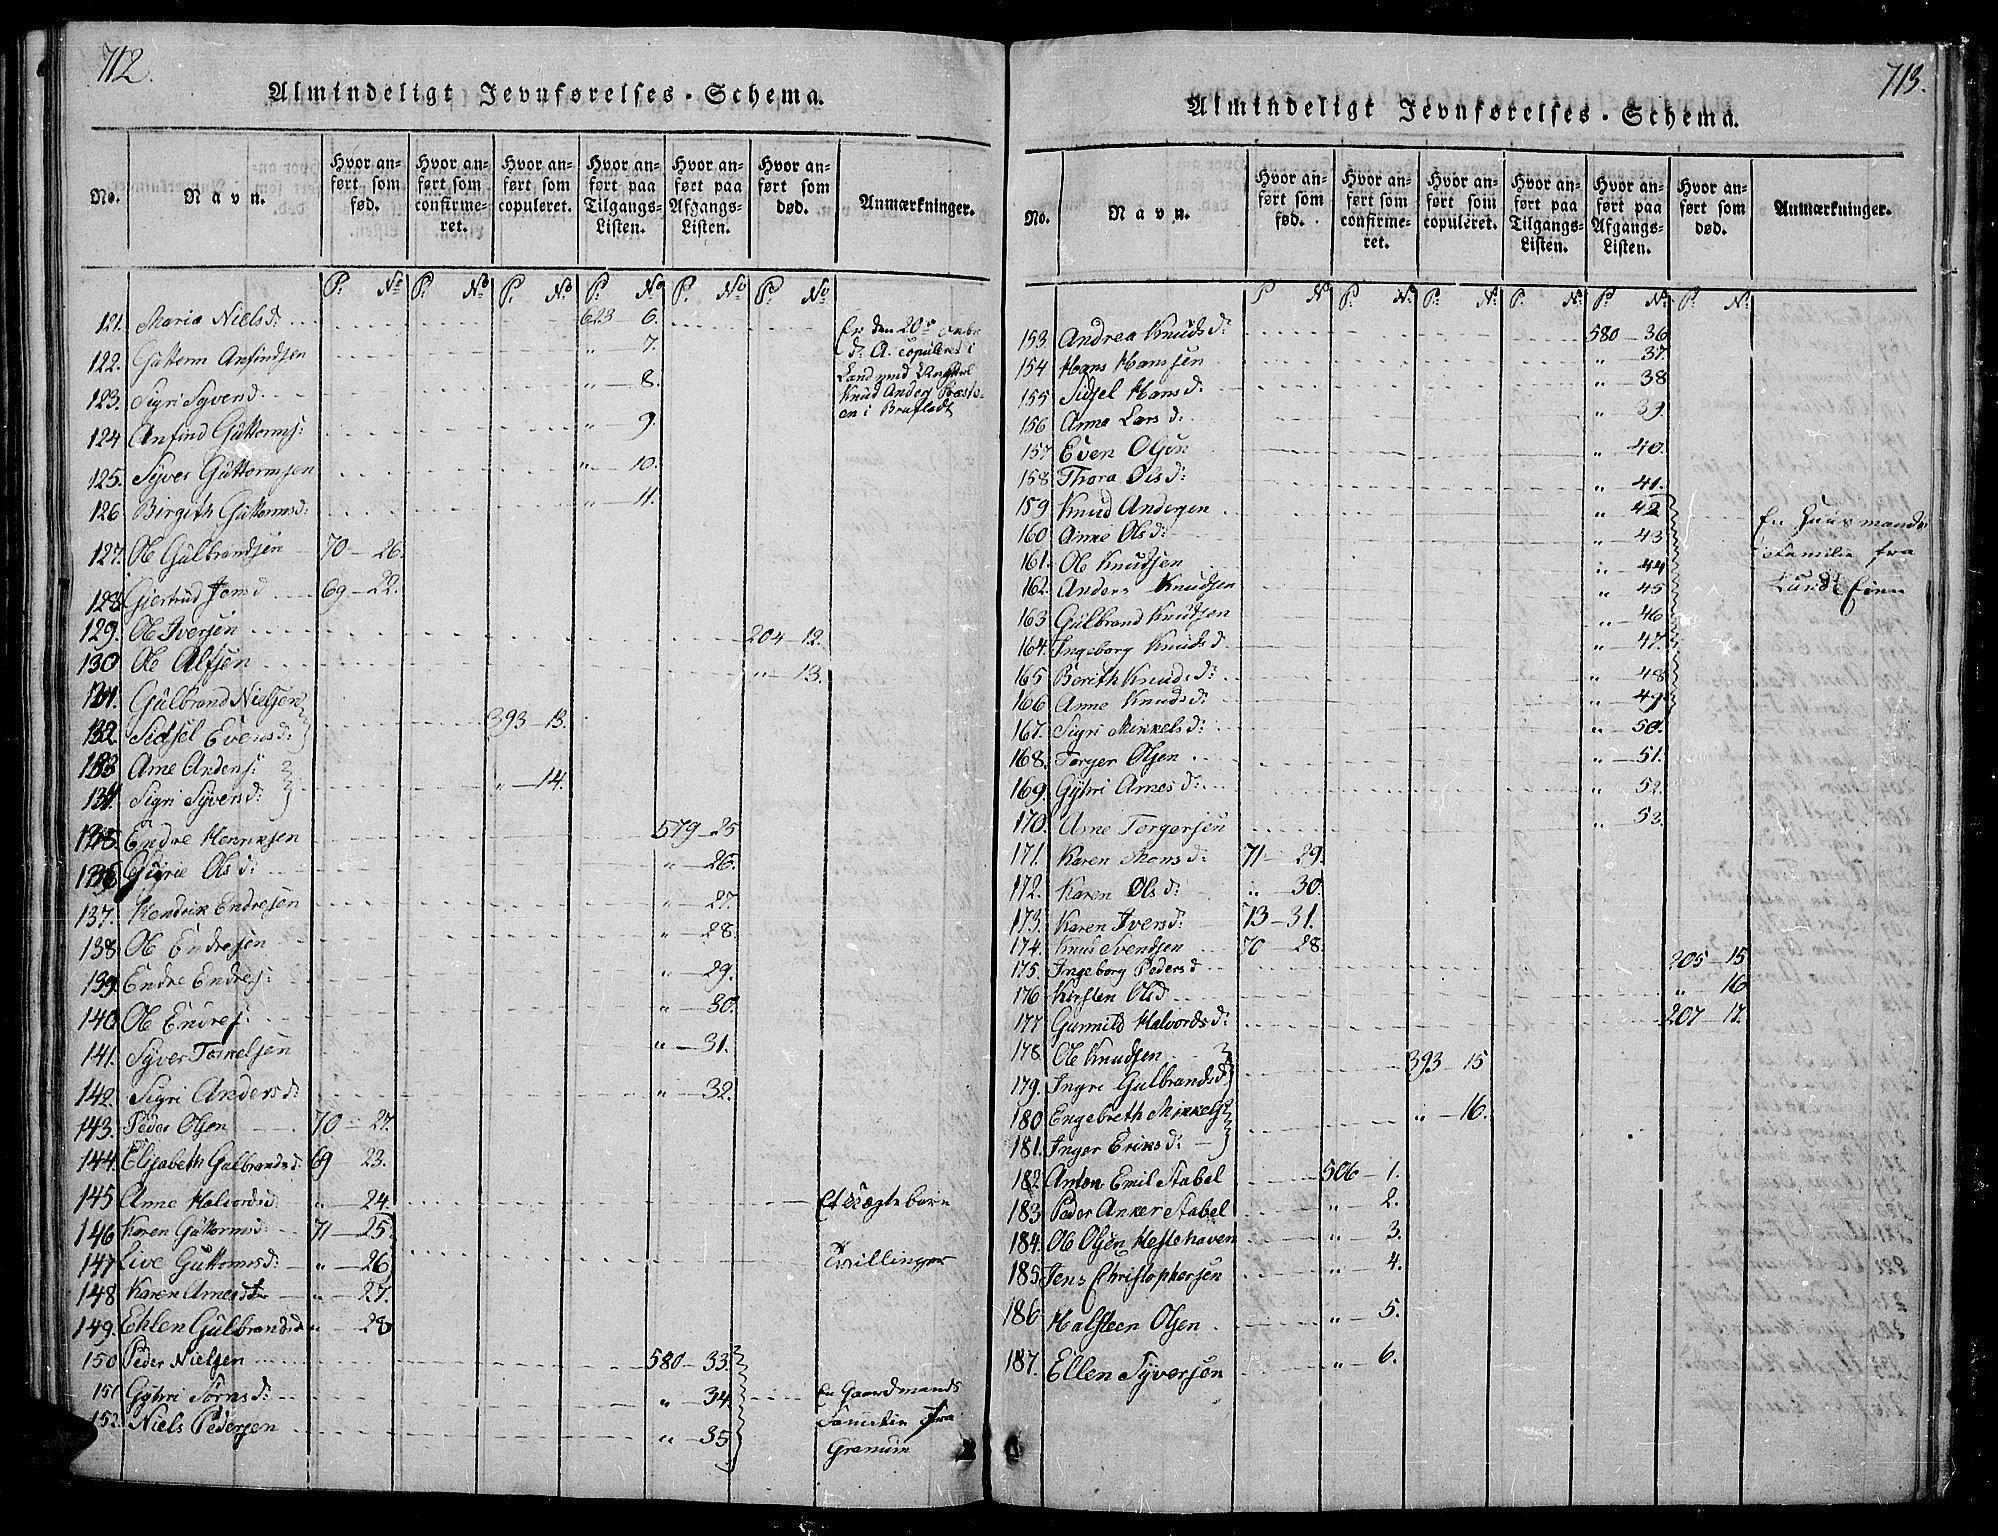 712.
Almindeligt Jevnførelses-Schema.
No. Navn. Hvor anført som fød. Hvor anført som confirmeret. Hvor anført som copuleret. Hvor anført paa Tilgangs-Listen. Hvor anført paa Afgangs-Listen. Hvor anført som død. Anmærkninger.
P. No P. No P. No P. No P. No P. No
121. Maria Nielsd: 623 6. Er den 20de
122. Guttorm Anfindsen " 7. d: A. copuleret i
123. Sigri Syversd. " 8. Land med
124 Anfind Guttorms: " 9. Knud Anders
125. Syver Guttormsen " 10. en i Brufladt
126 Birgith Guttormsd: " 11.
127. Ole Gulbrandsen 70 - 26.
128 Giertrud Jonsd 69 - 22.
129. Ole Iversen 204 - 12.
130 Ole Alfsen " - 13.
131. Gulbrand Nielsen
132 Sidsel Evensd: 393 - 13.
133 Arne Anders:
134. Sigri Syversd: " - 14.
135 Endre Henriksen 579 - 25
136 Guri Olsd: " - 26.
137. Hendrik Endresen " - 27
138. Ole Endresen " - 28.
139. Endre Endres: " - 29.
140 Ole Endres: " - 30.
141. Syver Torkelsen " - 31.
142. Sigri Andersd: " - 32.
143. Peder Olsen 70 - 27.
144. Elisabeth Gulbrandsd. 69 - 23.
145 Anne Halvordsd " - 24. Et uægte barn
146 Karen Guttormsd: 71 - 25.
147 Live Guttormsd: " - 26 Tvillinger
148 Karen Arnesd " - 27.
149. Ehlen Gulbrandsd " - 28
150 Peder Nielsen 580 - 33.
151 Gyhri Törnsd: " - 34. En Gaardmands
152. Niels Pedersen " - 35 Familie fra
Granum
713.
Almindeligt Jevnførelses-Schema.
No. Navn. Hvor anført som fød. Hvor anført som confirmeret. Hvor anført som copuleret. Hvor anført paa Tilgangs-Listen. Hvor anført paa Afgangs-Listen. Hvor anført som død. Anmærkninger.
P No P. No P. No P. No P. No P. No
153. Andrea Knudsd: 580 - 36
154 Hans Hanssen " 37.
155 Sidsel Hansd: " - 38
156 Anna Larsd. " - 39.
157 Even Olsen " - 40.
158 Thora Olsd: " - 41.
159 Knud Andersen " - 42 En Huusmands
160 Anne Olsd: " - 43 Familie fra
161. Ole Knudsen " - 44
162. Anders Knudsen " - 45 Lunde Eien
163 Gulbrand Knudsen " - 46
164. Ingeborg Knudsd " - 47.
165 Berith Knudsd: " - 48
166 Anne Knudsd: " - 49
167. Sigri Mikkelsd: " - 50.
168. Torger Olsen " - 51.
169. Gyhri Arnesd: " - 52
170. Arne Torgersen " - 53.
171. Karen Monsd: 71 - 29.
172. Karen Olsd: " - 30.
173. Karen Iversd: 73 - 31.
174. Knud Svendsen 70 - 28.
175. Ingeborg Pedersd 205 - 15
176 Kirsten Olsd " 16
177 Gunnild Halvordsd: 207 - 17.
178 Ole Knudsen
179. Ingri Gulbrandsd 393 - 15
180 Engebreth Mikkels: " - 16.
181. Inger Eriksd:
182 Anton Emil Stabel 506 - 1.
183 Peder Anker Stabel " - 2.
184. Ole Olsen Hestehaven " - 3.
185 Jens Christophersen " - 4.
186 Halsteen Olsen " - 5.
187. Ellen Syversen " - 6.